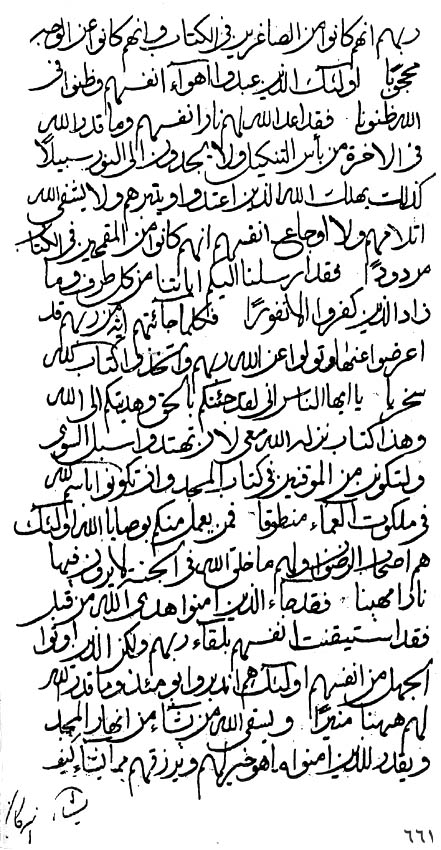 ربهم انهم كانوا من الصاغرين في الكتاب وانهم كانوا عن الوجه
محجوبا اولئك الذين عبدوا اهواء انفسهم وظنوا في
الله ظنونا فقد اعد الله لهم نارا انفسهم وما قدر الله
في الاخرة من بأس التنكيل ولا يجدون الى النور سبيلا
كذلك يهلك الله الذين اعتدوا ويتبرهم ولا يشفي الله
ولا اوجاع انفسهم انهم كانوا من في الكتاب
مردودا فقد ارسلنا اليكم اياتنا من كل طرف وما
زاد الذين كفروا الا نفورا فكلما جائتهم اية من ربهم قد
اعرضوا عنها وتولوا عن الله ربهم واتخذوا كتاب الله
سخريا يا ايها الناس اني لقد جئتكم بالحق وهديتكم الى الله
وهذا كتاب نزله الله معي لان تهتدوا سبل
ولتكونن من الموقنين في كتاب المجد وان تكونوا باسم الله
في ملكوت العماء منطوقا فمن يعمل منكم بوصايا الله اولئك
هم اصحاب الرضوان ولهم ما خلق الله في الجنة لا يرون فيها
نارا مهينا فقد جاء الذين امنوا هدى الله من قبل
فقد استيقنت انفسهم بلقاء ربهم ولكن الذين اوتوا
الجهل من انفسهم اولئك هم يومئذ وما قدر الله
لهم هيهنا منيرا ويسقى الله من يشاء من انهار المجد
ويقدر للذين امنوا ما هو خير لهم ويرزقهم مما يشاء كيف
يشاء
٦٦١